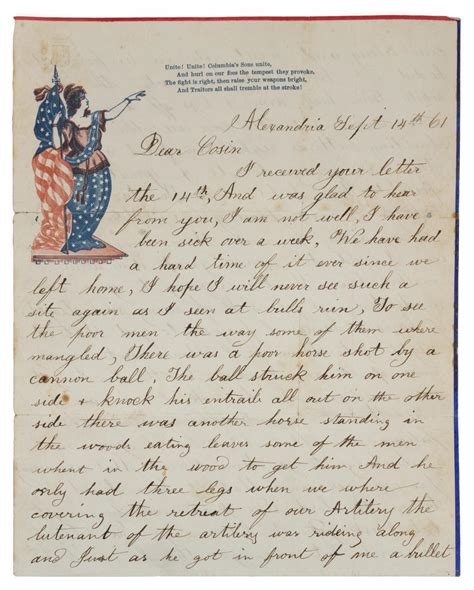 Unite! Unite! Columbia's Sons unite,
And hurl on our foes the tempest they provoke,
The fight is right, then raise your weapons bright,
And Traitors all shall tremble at the stroke!
Alexandria Sept 14th 61
Dear Cosin
I received your letter
the 14th, And was glad to hear
from you, I am not well, I have
been sick over a week, We have had
a hard time of it ever since we
left home, I hope I will never see such a
site again as I seen at bulls run, To see
the poor men the way some of them where
mangled, There was a poor horse shot by a
cannon ball, The ball struck him on one
side & knock his entrails all out on the other
side there was another horse standing in
the woods eating leaves some of the men
whent in the wood to get him And he
only had three legs when we where
covering the retreat of our Artitery the
lutenant of the artitery was rideing along
and Just as he got in front of me a bullet